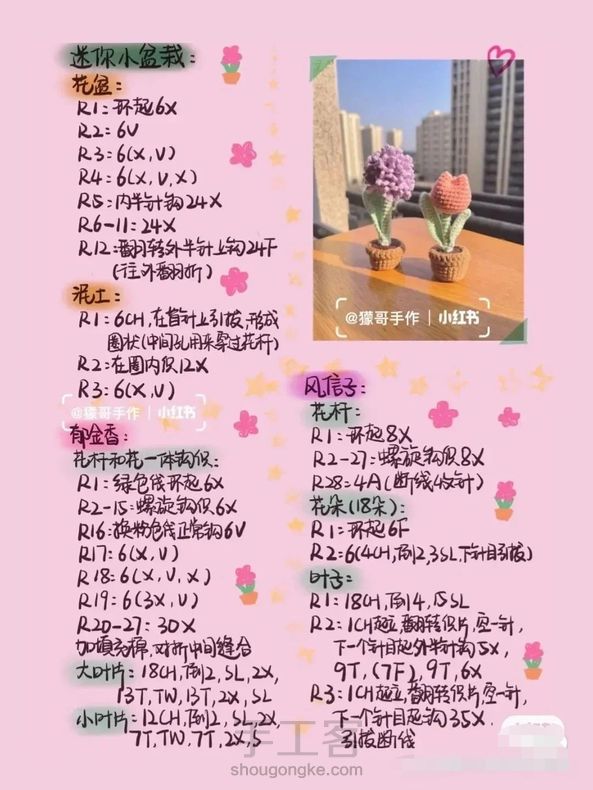 迷你小盆栽:
花盆:
R1:环起6X
R2:6V
R3:6(X,V)
R4:6(X,V,X)
R5:内半针钩24X
R6-11:24X
R12:翻转外半针上钩24F
(往外翻折)
泥土:
R1:6CH,在首针上引拔,形成
圈状(中间孔用来穿过花杆)
R2:在圈内织12X
R3:6(X,V)
@獴哥手作 | 小红书
郁金香:
花杆和花一体钩织:
R1:绿色线环起6X
R2-15:螺旋钩织6X
R16:换粉色线正常钩6V
R17:6(X,V)
R18:6(X,V,X)
R19:6(3X,V)
R20-27:30X
加填充棉,对折中间缝合
大叶片:18CH,倒2,SL,2X,
13T,TW,13T,2X,SL
小叶片:12CH,倒2,SL,2X,
7T,TW,7T,2X,S
@獴哥手作 | 小红书
风信子:
花杆:
R1:环起8X
R2-27:螺旋钩织8X
R28:4A(断线收针)
花朵(18朵):
R1:环起6F
R2:6(4CH,倒2,3SL,下针目引拔)
叶子:
R1:18CH,倒4,15SL
R2:1CH起立,翻转织片,空一针,
下一个针目起外半针钩5X,
9T,(7F),9T,6X
R3:1CH起立,翻转织片,空一针,
下一个针目起钩35X,
引拔断线
手工客
shougongke.com